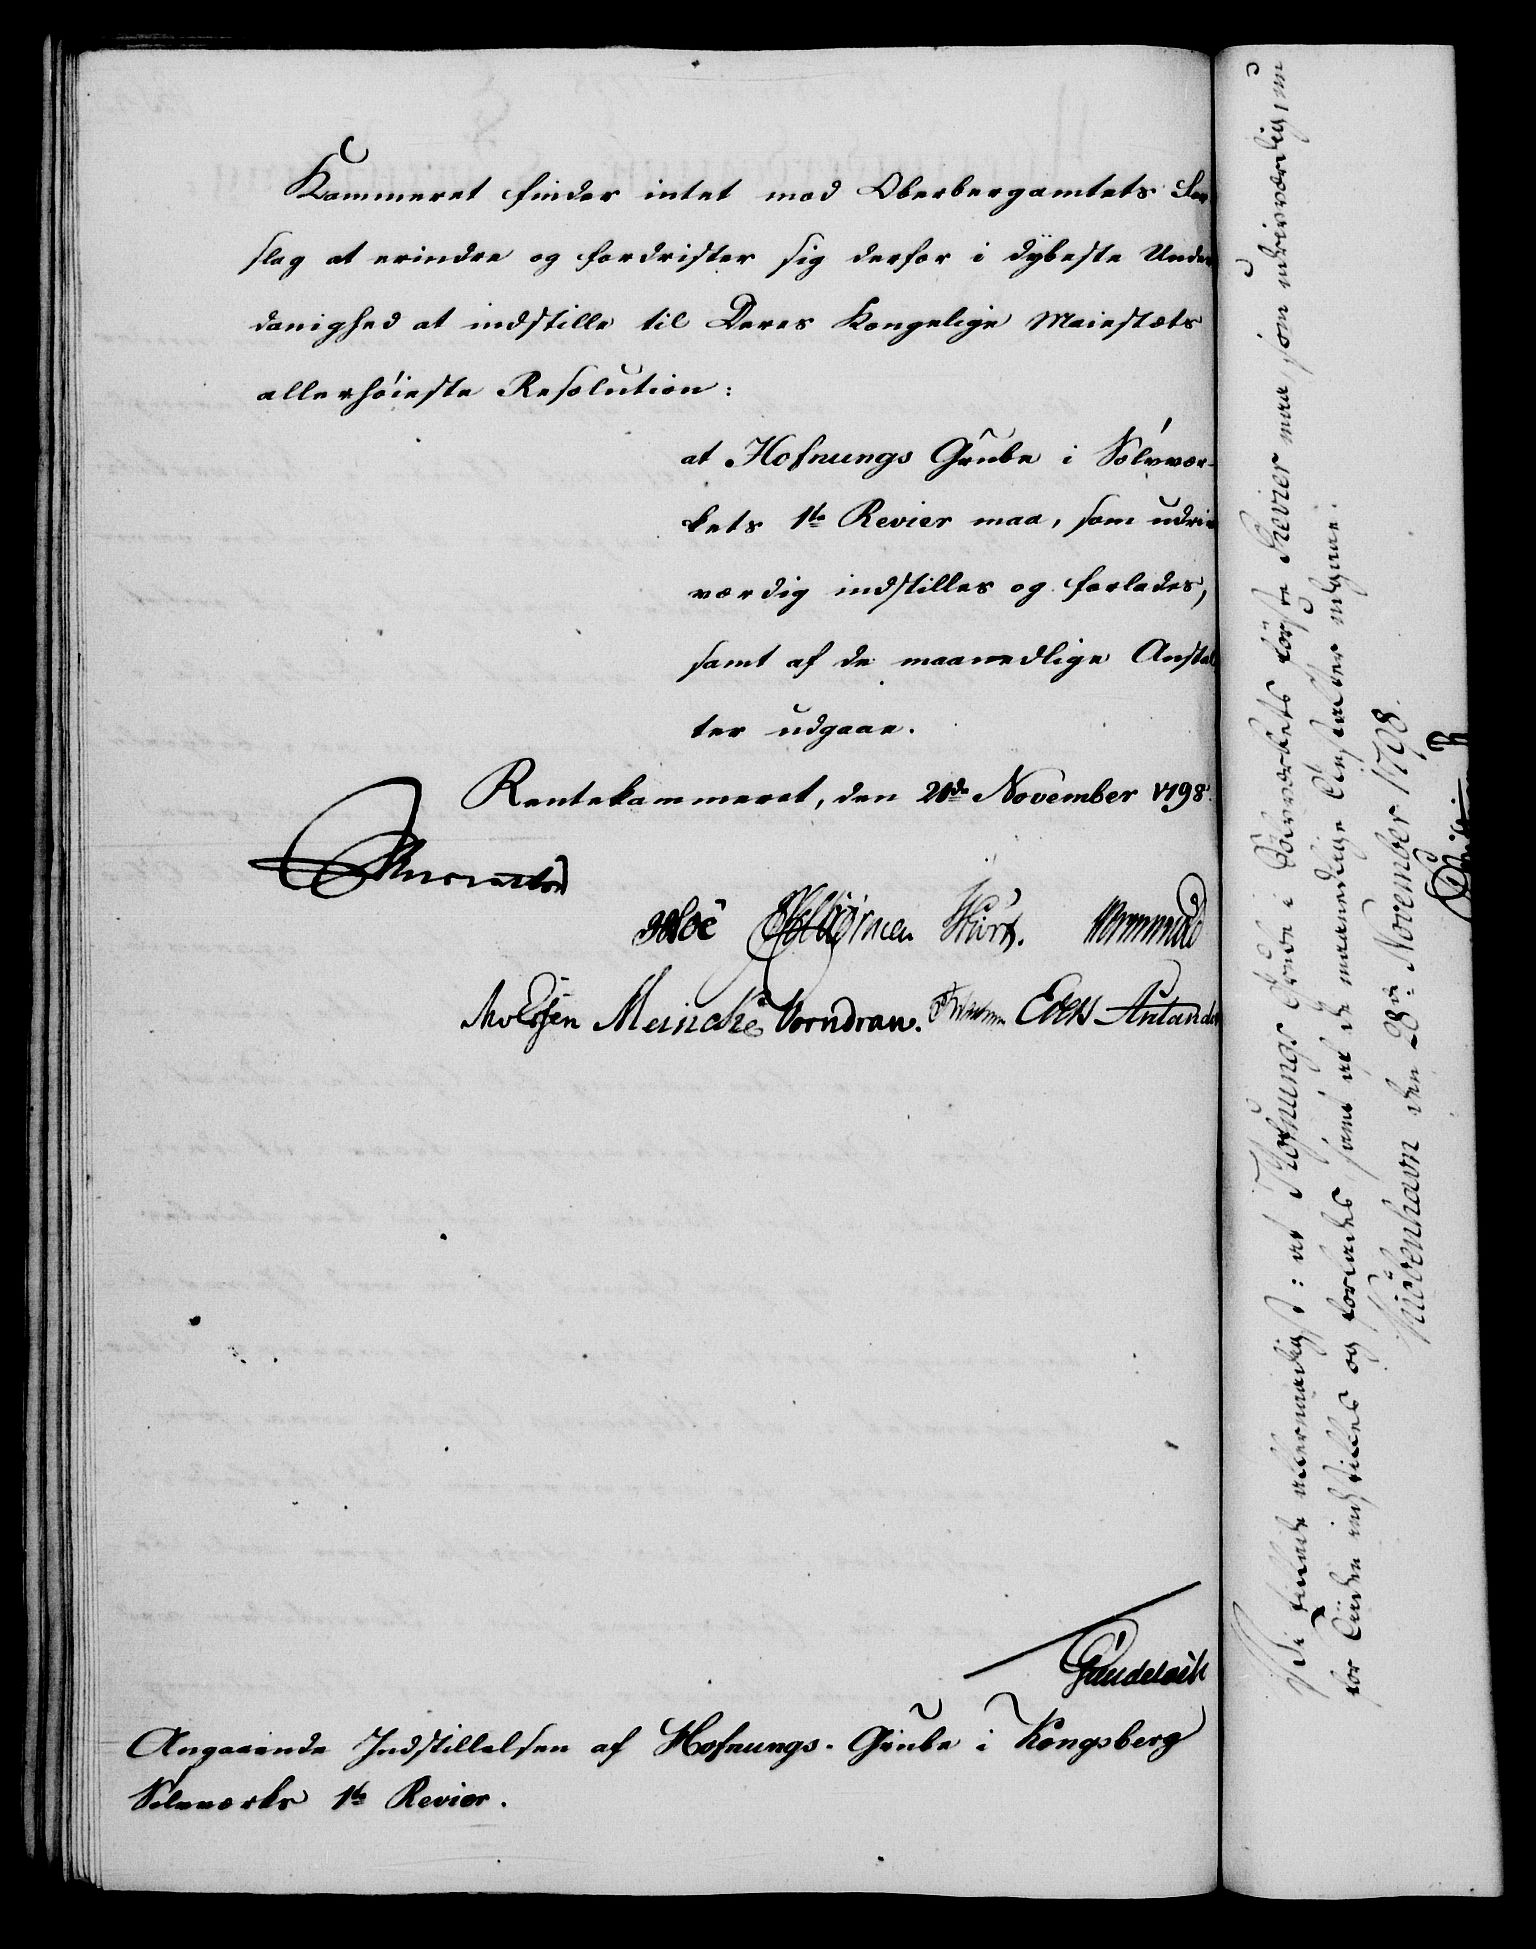 Kammeret finder intet mod Oberbergamtets For
slag at erindre og fordrister sig derfor i dybeste Under
danighed at indstille til Deres Kongelige Maiestæts
allerhöieste Resolution:
at Hofnungs Grube i Sölvvær-
kets 1te Revier maa, som udriv
værdig indstilles og forlades,
samt af de maanedlige Anstal
ter udgaae.
Rentekammeret, den 20de November 1798.
Meincke Vorndran.
Angaaende Indstillelsen af Hofnungs-Grube i Kongsberg
Sölvværks 1te Revier.
Vi ville allernaadigst: at Hofnungs Grube i Sölvværkets förste Revier maa, som udrivværdig, nu
for Tiden indstilles og forlades, samt af de maanedlige Anstalter udgaae.
Kiöbenhavn den 28de November 1798.